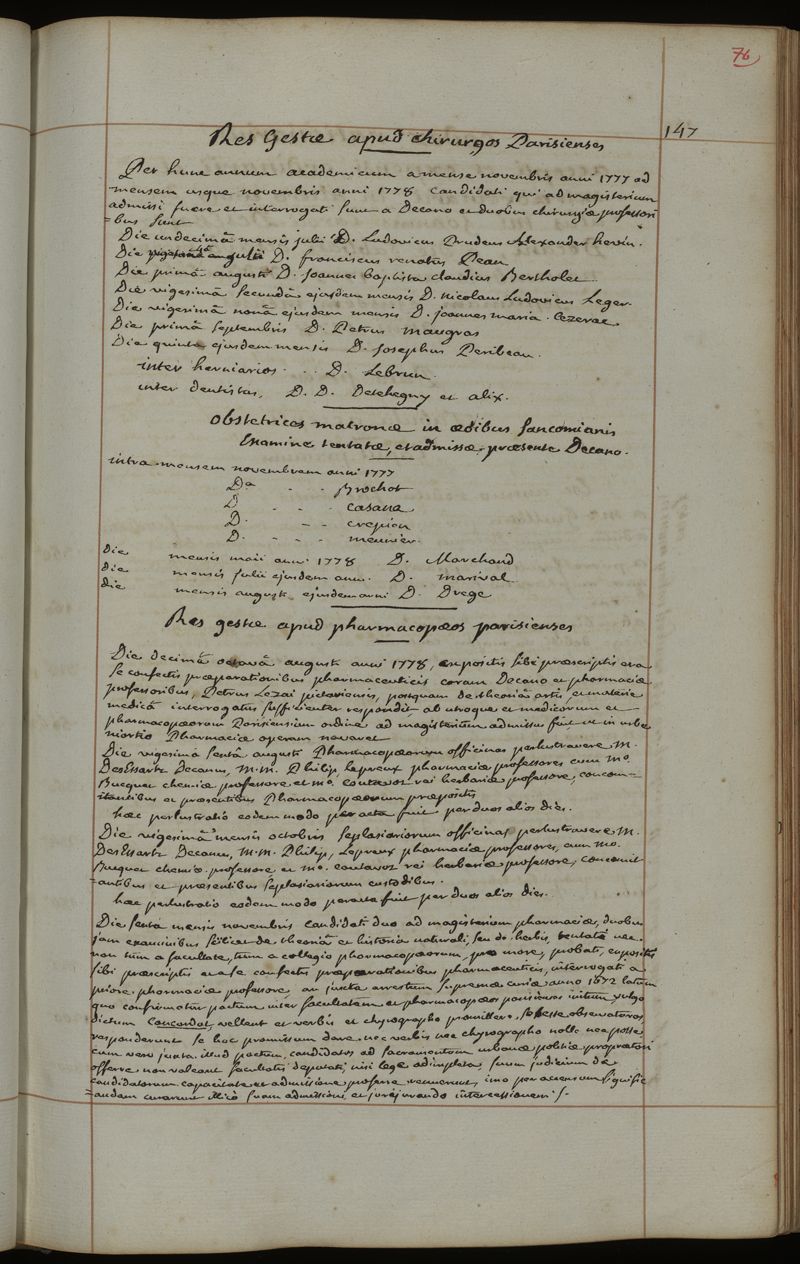 76
147
Res Gestæ apud chirurgos Parisienses
Per hunc annum academicum a mense novembris anni 1777 ad
mensem usque novembris anni 1778 candidati qui ad magisterium
admissi fuere et interrogati sunt a Decano et duobus chirurgiæ professori
=bus sunt
Die undecimâ mensis julii D. Ludovicus Prudens Alexander hevin.
Die augusti D. franciscus renatus Pean
Die primâ augusti D. Joannes baptista claudius Bertholet
Die vigesimâ secundâ ejusdem mensis D. nicolaus Ludovicus Leger.
Die vigesimâ nonâ ejusdem mensis D. joannes maria Cezerac
Die primâ septembris D. Petrus maugras
Die quinta ejusdem mensis D. Josephus Peribeau.
inter herniarios . . D. Lebrun.
inter dentistas, D. D. Detchegny et alix.
obstetrices matronæ in ædibus sancomianis
Examine tentatæ, et admissæ, præsente Decano.
intra mensem novembrem anni 1777
Da - - Brochot
D - - - casana
D. - - crepion
D. - - meunier.
Die mensis maii anni 1778 D. Marchand
Die mensis julii ejusdem anni. D. marival
Die mensis augusti ejusdem anni D. Drege
Res gestæ apud pharmacopæos parisienses
Die decimâ octavâ augusti anni 1778, expositis sibi præscriptis et a
se confectis præparationibus pharmaceuticis coram Decano et pharmaciæ
professoribus, Petrus Lezai pictaviensis, postquam de theoriâ artis et materie
medicâ interrogatus sufficienter respondit ab utroque et medicorum et
pharmacopæorum Parisiensium ordine ad magisterium admissus fuit ut in urbe
niortio Pharmaciæ operam navaret
Die vigesima sextâ augusti Pharmacopæorum officinas perlustravere M.
DesEssartz Decanus, M.M. Philip, Lepreux pharmaciæ professores cum mo.
Bucquet chemiæ professore et mo. coutavoz rei herbariæ professore, concom=
itantibus et præsentibus Pharmacopæorum præpositis
hæc perlustratio eodem modo peracta fuit per duos alios dies.
Die vigesimâ mensis octobris seplasiariorum officinas perlustravere M.
DesEssartz Decanus, M.M. Philip, Lepreux pharmaciæ professores, cum mo.
Bucquet chemiæ professore et mo. coutavoz rei herbariæ professore, concomit
=antibus et præsentibus seplasiariorum custodibus.
hæc perlustratio eodem modo peracta fuit per duos alios dies.
Die sexta mensis novembris candidati duo ad magisterium pharmaciæ, duobus
jam examinibus scilicet de theoriâ et historiâ naturali, seu de herbis, tentati nec
non tum a facultate, tum a collegio pharmacopæorum, pro more, probati, expositis
sibi præscriptis et a se confectis præparationibus pharmaceuticis, interrogati a
priore pharmaciæ professore, an juxta arrestum supremæ curiæ anno 1672 latum
quo confirmatur pactum inter facultatem et pharmacopæos parisienses initum, vulgo
dictum Concordat, vellent et verbis et chyrographo promittere, se esse observaturos
responderunt se hoc promissum dare nec verbis nec chyrographo nolle nec posse,
cum vero juxta illud pactum, candidatos ad sacramentum urbanæ politiæ præpositori
offerre non valeant facultatis deputati, nisi lege adimpleta, suum judicium de
candidatorum capacitate et admissione proferre renuerunt, imo per accensum significa
=andam curarunt illico suam admissioni et jurejurando intercessionem /-